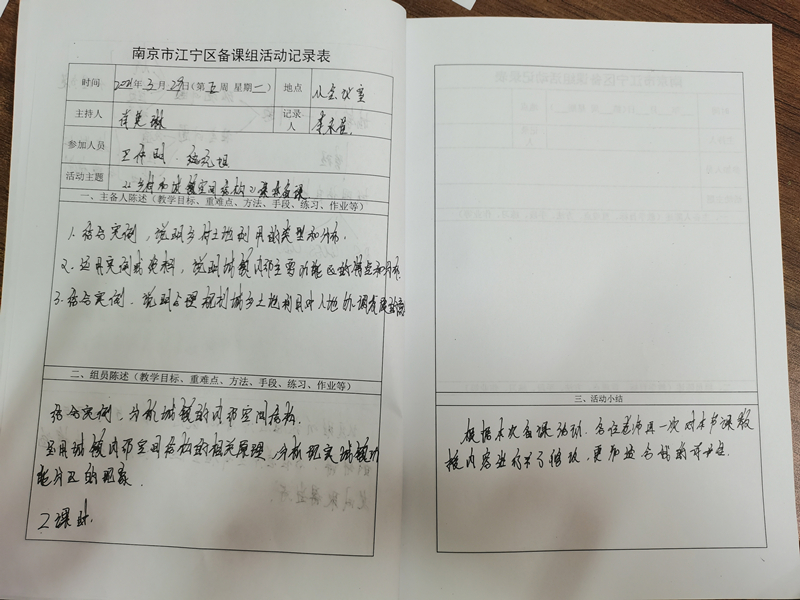 南京市江宁区备课组活动记录表
时间 2021年3月29日(第五周 星期一) 地点
主持人 记录人
参加人员
活动主题 2.1乡村和城镇空间结构(2)集体备课
一、主备人陈述（教学目标、重难点、方法、手段、练习、作业等）
1. 结合实例，说明乡村土地利用的类型和分布.
2. 运用实例或资料，说明城镇内部主要功能区的特点和分布.
3. 结合实例. 说明合理规划城乡土地利用对人地协调发展
二、组员陈述（教学目标、重难点、方法、手段、练习、作业等）
结合实例，分析城镇的内部空间结构.
运用城镇内部空间结构的相关原理，分析现实城镇功
能分区的现象.
2课时.
三、活动小结
根据本次备课活动. 各位老师再一次对本节课教
授内容进行了修改，更加适合